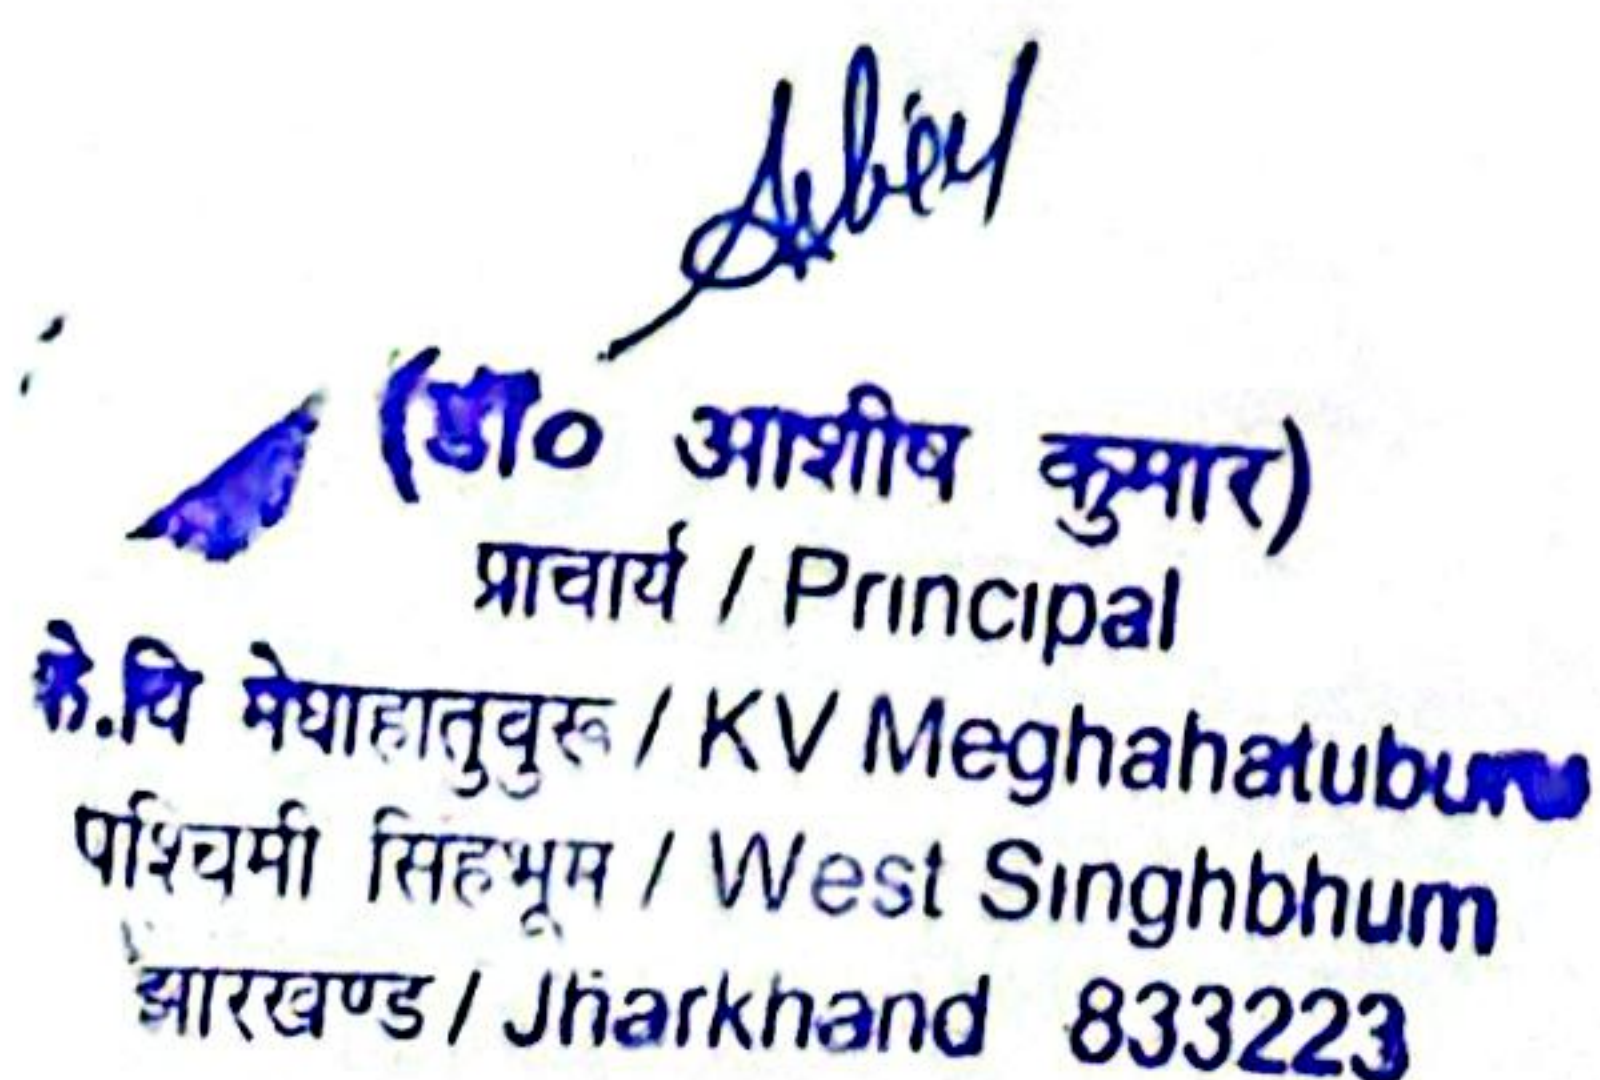 (डॉ० आशीष कुमार)
प्राचार्य / Principal
के.वि मेघाहातुवुरू / KV Meghahatuburu
पश्चिमी सिंहभूम / West Singhbhum
झारखण्ड / Jharkhand 833223